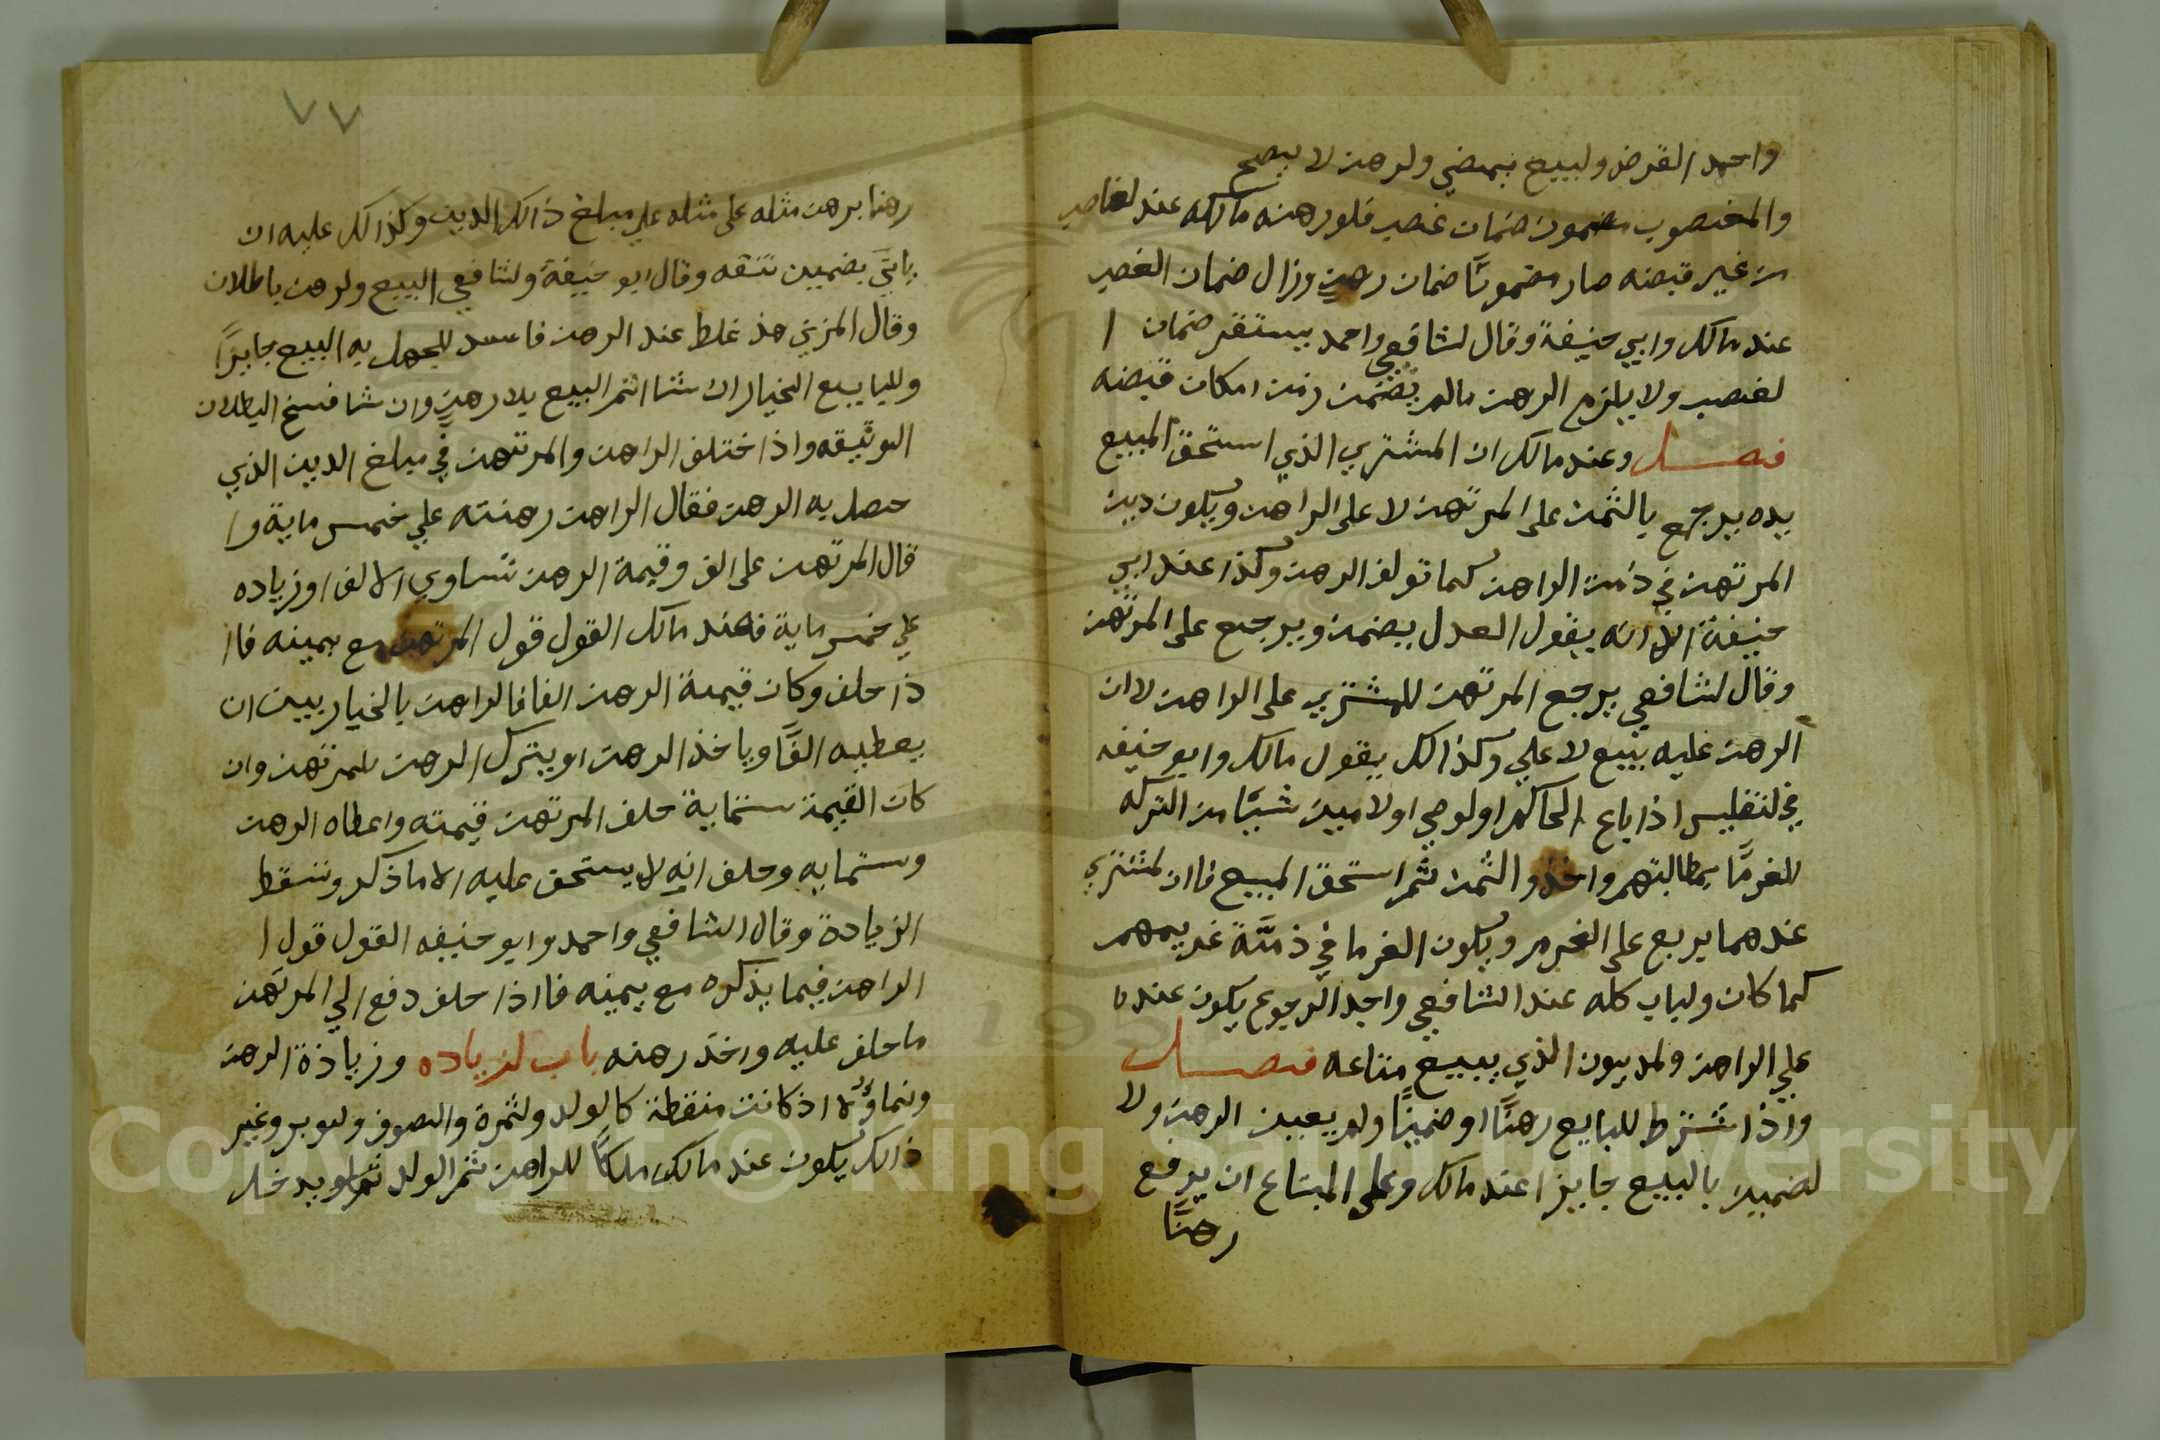 واحمد القرض ولبيع بمضي ولرهن لا يصح
والمغصوب مضمون ضمان غصب فلو رهنه مالكه عند لغاصب
من غير قبضه صار مضمونا ضمان رهن وزال ضمان الغصب
عند مالك وابي حنيفة وقال لشافعي واحمد يستقر ضمان ا
لغصب ولا يلزم الرهن مالم يضمن زمن امكان قبضه
فصل وعند مالك ان المشتري الذي استحق المبيع
بيده يرجع بالثمن على المرتهن لا على الراهن ويكون دين
المرتهن في ذمت الراهن كما تولف الرهن وكذا عند ابي
حنيفة الا انه يقول العدل يضمن ويرجع على المرتهن
وقال لشافعي يرجع المرتهن للمشتري على الراهن لاان
الرهن عليه بيع لا علي وكذالك يقول مالك وابو حنيفه
في لتفليس اذا باع الحاكم او لوصي او لامين شيا من التركه
للغرما بمطالبتهم واخذو الثمن ثم استحق المبيع فاان لمشتري
عندهما يرجع على الغرم ويكون الغرما في ذمة غريمهم
كما كان ولباب كله عند الشافعي واحد الرجوع يكون عنده
علي الراهن ولمديون الذي يبيع متاعه فصل
واذا شترط للبايع رهنا او ضمينا ولم يعين الرهن ولا
لضمين بالبيع جايز ا عند مالك وعلى المبتاع ان يرفع
رهنا
٧٧
رهنا برهن مثله على مثله علي مبلغ ذالك الدين وكذالك عليه ان
ياتي بضمين ثقه وقال ابو حنيفة ولشافعي البيع ولرهن باطلان
وقال المزني هذ غلط عند الرهن فاسد للجهل به البيع جايزا
ولليايع الخيار ان شا اتم البيع بلا رهن وان شا فسخ البطلان
الوثيقه واذا ختلف الراهن والمرتهن في مبلغ الدين الذي
حصل به الرهن فقال الراهن رهنته علي خمس ماية وا
قال المرتهن على الف وقيمة الرهن تساوي الالف او زياده
علي خمس ماية فعند مالك القول قول المرتهن مع يمينه فاا
ذا حلف وكان قيمة الرهن الفا فالراهن بالخيار بين ان
يعطيه الفا وياخذ الرهن او يترك الرهن للمرتهن وان
كان القيمة ستماية حلف المرتهن قيمته واعطاه الرهن
وستمايه وحلف انه لا يستحق عليه الا ما ذكر وتسقط
الزيادة وقال الشافعي واحمد وابو حنيفه القول قول ا
الراهن فيما يذكره مع يمينه فااذا حلف دفع الي المرتهن
ما حلف عليه واخذ رهنه باب لزياده وزيادة الرهن
ونماؤه اذ كانت منقطة كالولد ولثمرة والصوف ولوبر وغير
ذالك يكون عند مالك ملكا للراهن ثم الولد يدخل